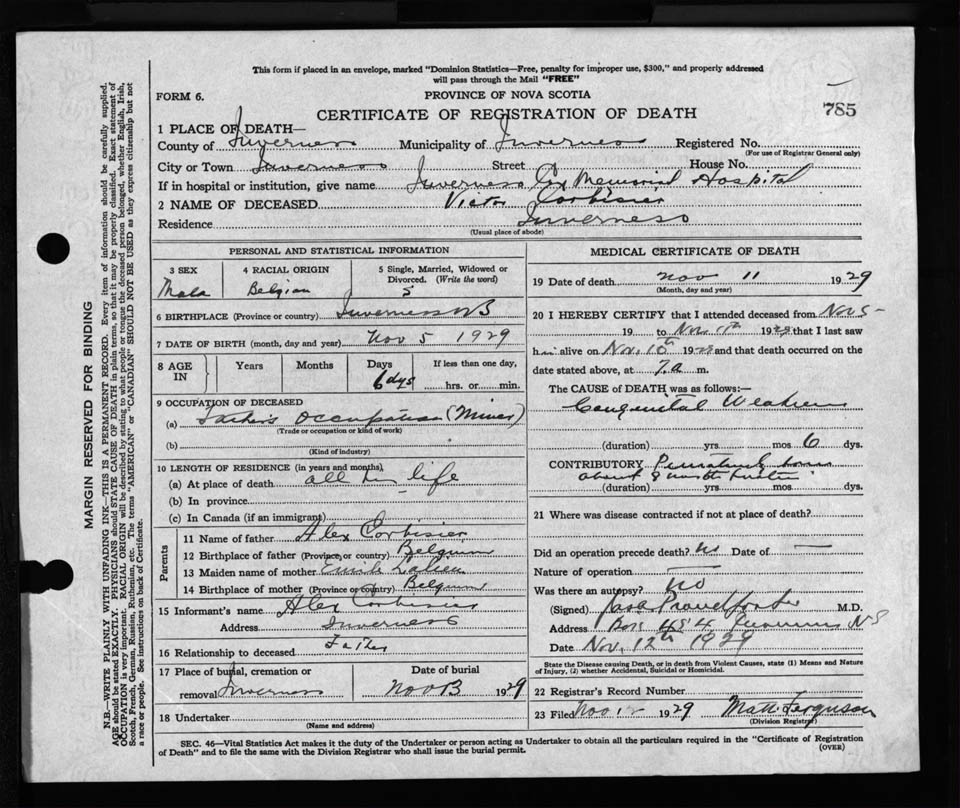 This form if placed in an envelope, marked "Dominion Statistics—Free, penalty for improper use, $300," and properly addressed
will pass through the Mail "FREE"
FORM 6.
PROVINCE OF NOVA SCOTIA
785
CERTIFICATE OF REGISTRATION OF DEATH
1 PLACE OF DEATH—
County of Inverness Municipality of Inverness Registered No.
(For use of Registrar General only)
City or Town Inverness Street House No.
If in hospital or institution, give name Inverness Co Memorial Hospital
2 NAME OF DECEASED Victor Corbisier
Residence Inverness
(Usual place of abode)
PERSONAL AND STATISTICAL INFORMATION
3 SEX
Male
4 RACIAL ORIGIN
Belgian
5 Single, Married, Widowed or
Divorced. (Write the word)
S
6 BIRTHPLACE (Province or country) Inverness
7 DATE OF BIRTH (month, day and year) Nov 5 1929
8 AGE IN
Years Months Days If less than one day,
6 dys hrs. or min.
9 OCCUPATION OF DECEASED
(a) Father's Occupation (Miner)
(Trade or occupation or kind of work)
(b)
(Kind of industry)
10 LENGTH OF RESIDENCE (in years and months)
(a) At place of death all his life
(b) In province
(c) In Canada (if an immigrant)
Parents
11 Name of father Alex Corbisier
12 Birthplace of father (Province or country) Belgium
13 Maiden name of mother
14 Birthplace of mother (Province or country) Belgium
15 Informant's name Alex Corbisier
Address Inverness
16 Relationship to deceased Father
17 Place of burial, cremation or
removal Inverness
Date of burial
Nov 13 1929
18 Undertaker
(Name and address)
MEDICAL CERTIFICATE OF DEATH
19 Date of death Nov 11 1929
(Month, day and year)
20 I HEREBY CERTIFY that I attended deceased from Nov 5
19 to Nov 11th 1929 that I last saw
him alive on Nov. 10th 1929 and that death occurred on the
date stated above, at 7. a m.
The CAUSE of DEATH was as follows:—
Congenital Weakness
(duration) yrs mos 6 dys.
CONTRIBUTORY
about 8 months
(duration) yrs. mos. dys.
21 Where was disease contracted if not at place of death?
Did an operation precede death? No Date of —
Nature of operation —
Was there an autopsy? No
(Signed) Proudfoot M.D.
Address Box 454 Inverness N S
Date Nov. 12th 1929
State the Disease causing Death, or in death from Violent Causes, state (1) Means and Nature
of Injury, (2) whether Accidental, Suicidal or Homicidal.
22 Registrar's Record Number
23 Filed Nov 12 1929 Matt Ferguson
(Division Registrar)
SEC. 46—Vital Statistics Act makes it the duty of the Undertaker or person acting as Undertaker to obtain all the particulars required in the "Certificate of Registration
of Death" and to file the same with the Division Registrar who shall issue the burial permit.
(OVER)
MARGIN RESERVED FOR BINDING
N.B.—WRITE PLAINLY WITH UNFADING INK—THIS IS A PERMANENT RECORD. Every item of information should be carefully supplied.
AGE should be stated EXACTLY. PHYSICIANS should STATE CAUSE OF DEATH in plain terms, so that it may be properly classified. Exact statement of
OCCUPATION is very important. RACIAL ORIGIN will be described by stating to what people or tongue the deceased person belonged, whether English, Irish,
Scotch, French, German, Russian, Ruthenian, etc. The terms "AMERICAN" or "CANADIAN" SHOULD NOT BE USED as they express citizenship but not
a race or people. See instructions on back of Certificate.